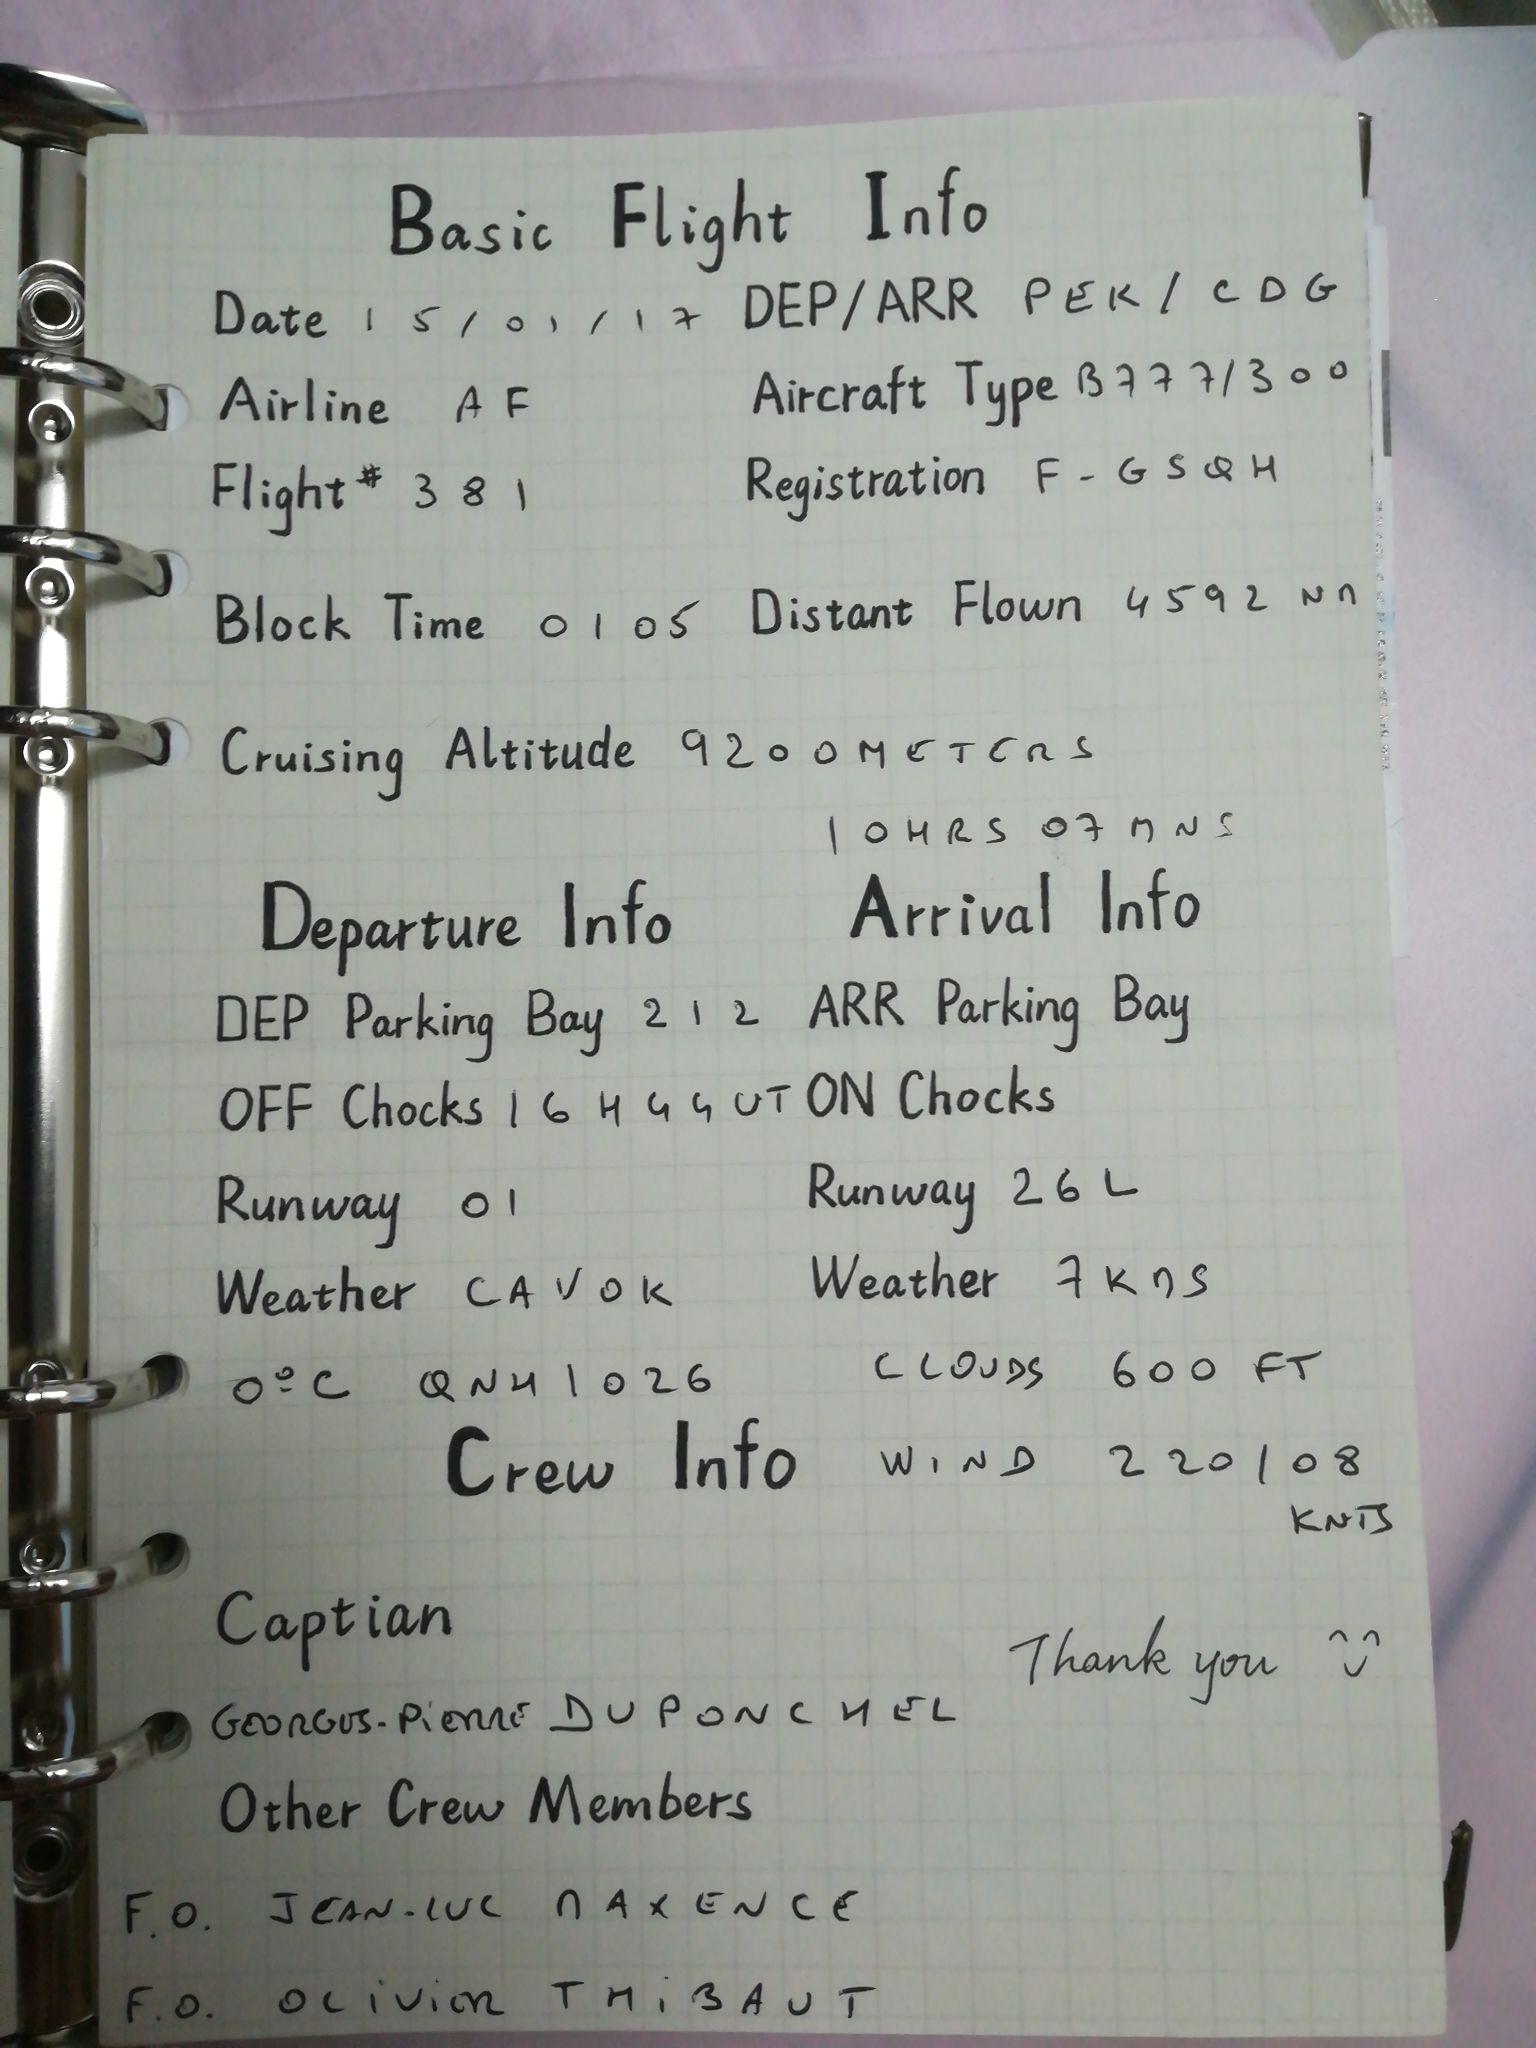 Basic Flight Info
Date 15/01/17 DEP/ARR PEK/CDG
Airline AF Aircraft Type B777/300
Flight# 381 Registration F-GSQH
Block Time 0105 Distant Flown 4592 NM
Cruising Altitude 9200 METERS
10HRS 07 MNS
Departure Info Arrival Info
DEP Parking Bay 212 ARR Parking Bay
OFF Chocks 16H44UT ON Chocks
Runway 01 Runway 26L
Weather CAVOK Weather 7KMS
0°C QNH1026 CLOUDS 600 FT
Crew Info WIND 220/08
KNTS
Captian
Thank you
GEORGUS-PiERRE DUPONCHEL
Other Crew Members
F.O. JEAN-LUC MAXENCE
F.O. OLiViER THiBAUT